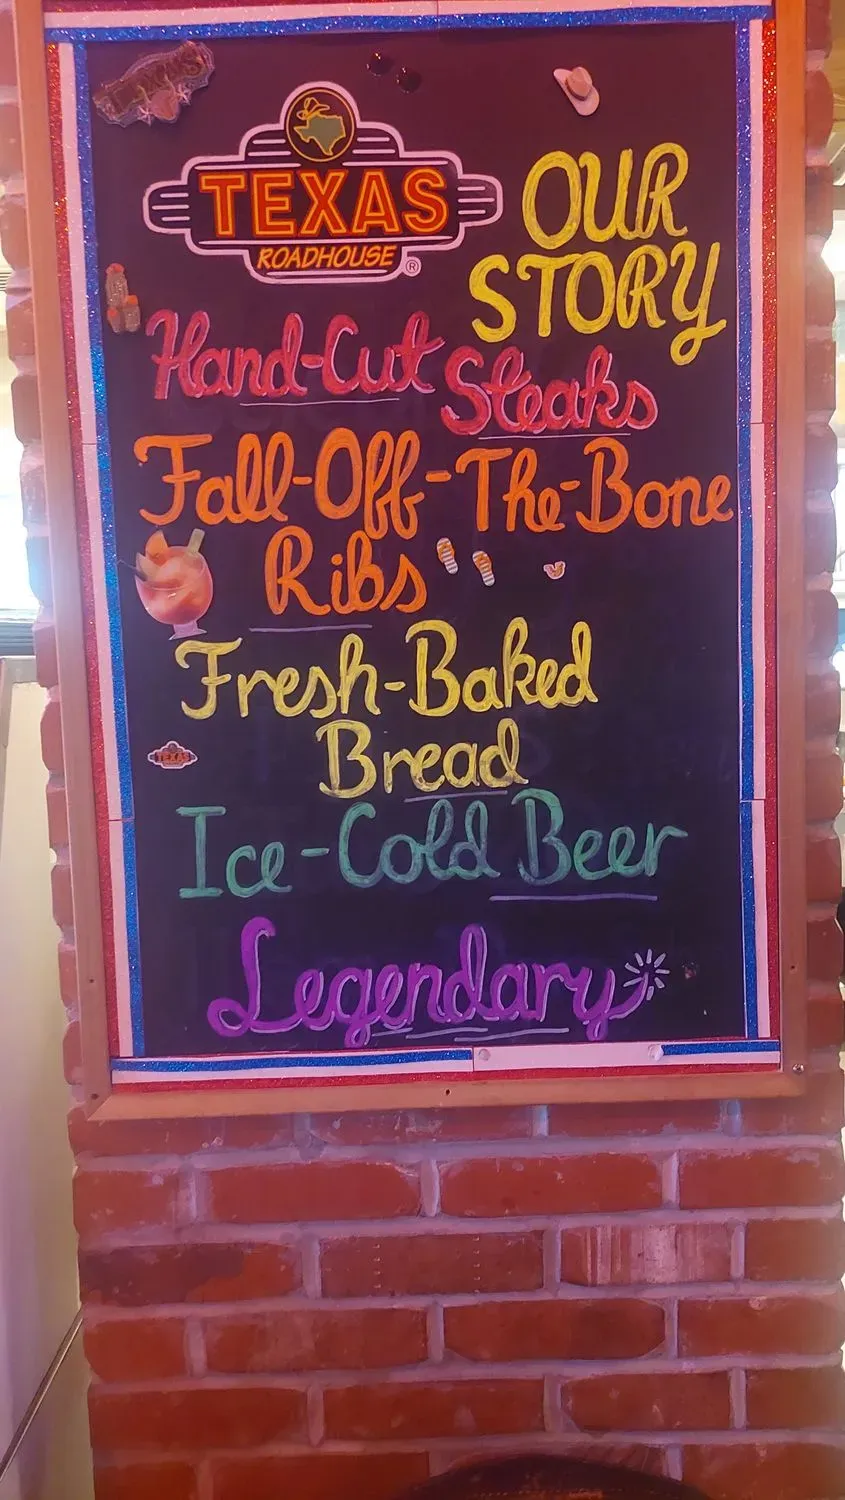 TEXAS
ROADHOUSE ®
OUR
STORY
Hand-Cut Steaks
Fall-Off-The-Bone
Ribs
Fresh-Baked
Bread
TEXAS
Ice-Cold Beer
Legendary